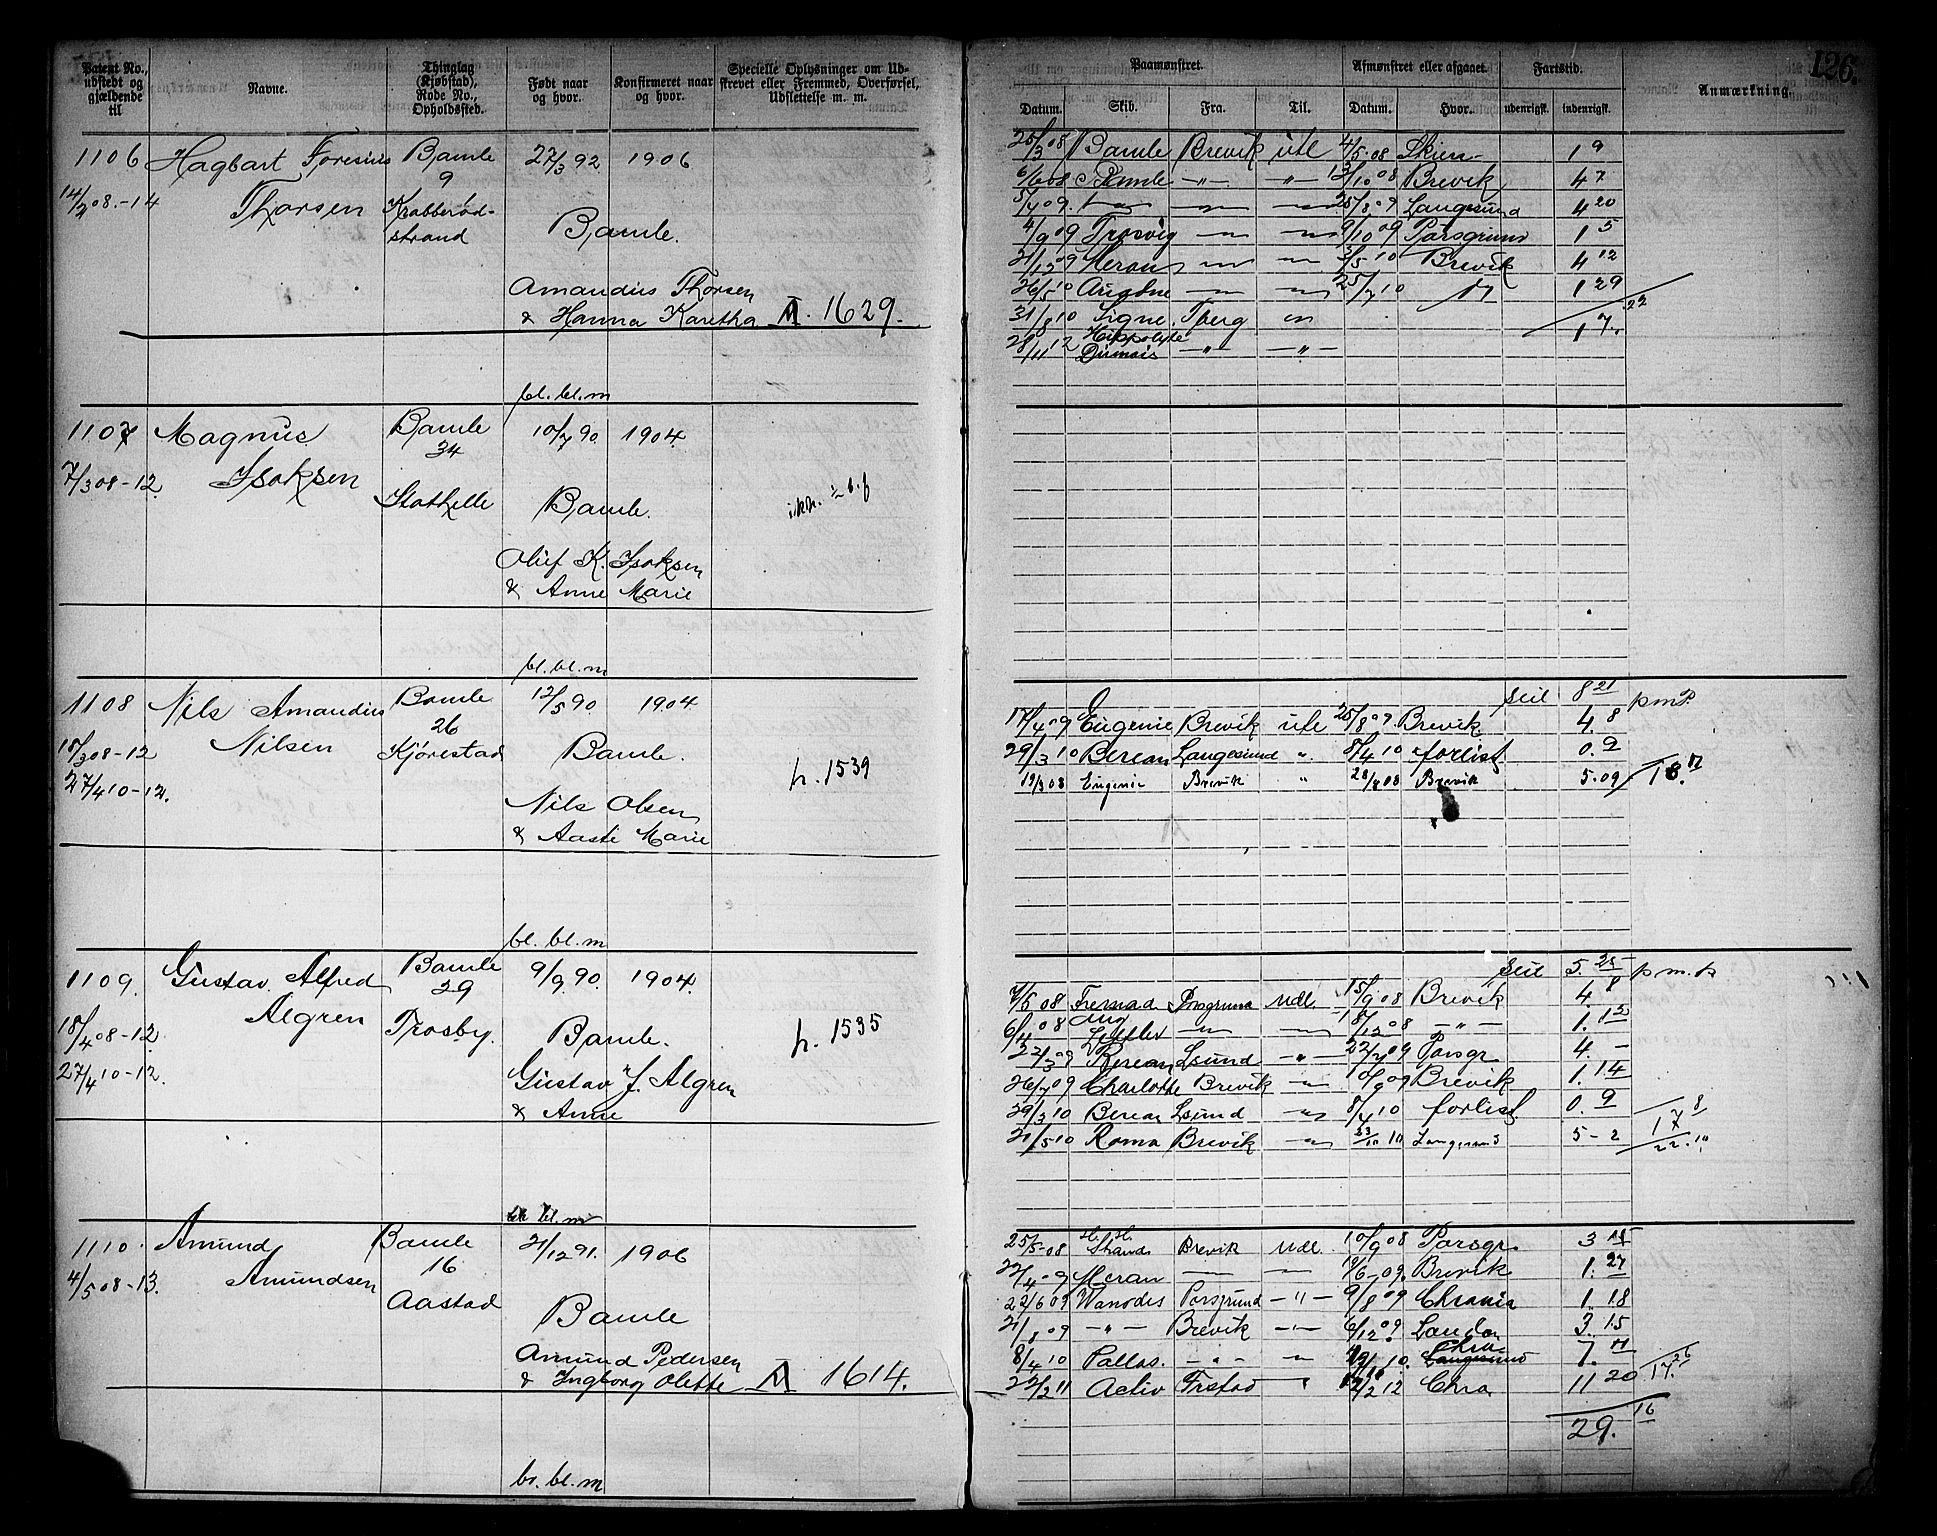 126.
Patent No., udstedt og gjældende til
Navne.
Thinglag (Kjøbstad), Rode No., Opholdssted.
Født naar og hvor.
Konfirmeret naar og hvor.
Specielle Oplysninger om Udskrevet eller Fremmed, Overførsel, Udslettelse m. m.
Paamønstret.
Afmønstret eller afgaaet.
Fartstid.
Anmærkning.
Datum. Skib. Fra. Til. Datum. Hvor. udenrigsk. indenrigsk.
1106 Hagbart Foresius Bamle 27/3 92 1906
14/2 08.-14 Thorsen 9
Krabberød-
strand Bamle.
Amandus Thorsen
& Hanna Karetha M. 1629.
bl. bl. m
25/3 08 Bamle Brevik utl 4/5.08 Skien 1 9
6/6 08 Bamle -„- -„- 13/10 08 Brevik 4 7
5/4 09. -„- -„- -„- 25/8 09 Langesund 4 20
4/9 09 Trosvig -„- -„- 9/10 09 Porsgrund 1 5
21/12 09 Meran -„- -„- 3/5 10 Brevik 4 12
26/5 10 Ariadne -„- -„- 25/7 10 -„- 1 29
31/8 10 Signe Tberg -„- 17. 22
28/11 12 Hippolyte Dumois -„- -„-
1107 Magnus Bamle 10/7 90. 1904
7/3 08-12 Isaksen 34
Stathelle Bamle.
Oluf K. Isaksen
& Anne Marie
bl. bl. m
1108 Nils Amandus Bamle 12/5 90. 1904
18/3 08-12 Nilsen 26
27/4 10-12. Kjørestad Bamle.
h. 1539
Nils Olsen
& Aaste Marie
bl. bl. m
Seil 8 21 pm.P.
17/4 09 Eugenie Brevik utl 25/8 09. Brevik 4. 8
29/3 10 Berean Langesund „ 8/4 10 forlist 0. 9
19/3 08 Eugenie Brevik „ 28/8 08 Brevik 5.09 18. 17
1109. Gustav Alfred Bamle 9/9. 90. 1904.
18/4 08-12 Algren 29
27/4 10-12. Trosby. Bamle.
h. 1535
Gustav J. Algren
& Anne
Seil 5. 25 p m. k
7/5 08 Fremad Porsgrund Udl. 15/9 08 Brevik 4. 8
6/11 08 Aug Leffler -„- -„- 18/12 08 -„- 1. 12
22/3 09 Berean Lsund -„- 22/7 09 Porsgr. 4. -
26/7 09 Charlotte Brevik -„- 10/9 09 Brevik 1. 14
29/3 10 Berean Lsund -„- 8/4 10 forlist 0. 9 17 8
21/5 10 Roma Brevik -„- 23/10 10 Langesund 5-2 22.10
1110. Amund Bamle 21/12 91. 1906
4/5 08-13. Amundsen 16
Aastad Bamle
Amund Pedersen
& Ingborg Olette M 1614.
br. bl. m
25/5-08 H. H. Strands Brevik Udl. 10/9 08 Porsgr. 3 15
22/4 09 Meran -„- -„- 19/6-09. Brevik 1. 27
22/6 09 Wanodis Porsgrund -„- 9/8 09 Chrania 1. 18
21/8 09 -„- Brevik -„- 6/12 09 London 3. 15
8/4 10 Pallas. -„- -„- Langesund Chra 7. 11 17. 26
22/2 11 Activ Frstad „ 12/2 12 Chra 11 20
29. 16